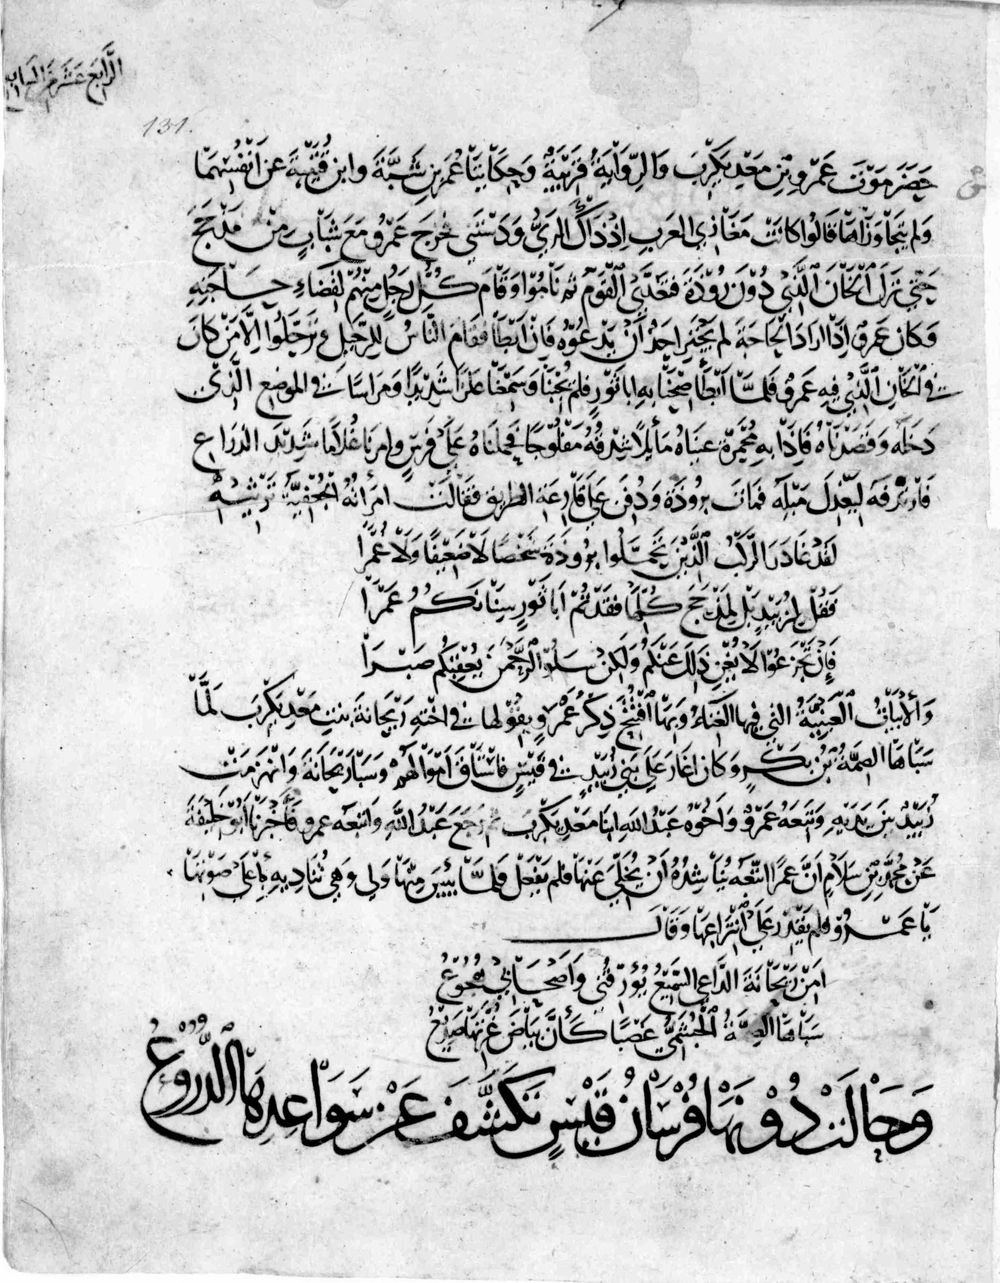 الرابع عشر من الكتاب
131.
حَضَرَ مَوْتَ عَمْرِو بْنِ مَعْدِيكَرِبَ وَالرِّوَايَةُ قَرِيبَةٌ وَحِكَايَتَا عُمَرَ بنِ شَبَّةَ وابن قُتَيْبَةَ عَن اَنْفُسِهِمَا
وَلم يَتَجَاوَزَاهَا قَالُوا كَانَتْ مَغَازِي العَرَبِ اِذْ ذَاكَ الرَيُّ وَدَسْتَبَى فخَرَجَ عَمْرٌو مَعَ شَبَابٍ مِنْ مَذْحِجَ
حَتّى نَزَلَ الْخَانَ الَّذِي دُوْنَ رُوْذَةَ فَتَغَدَّى القَوْمُ ثُم نَامُوا وَقَامَ كُلُّ رَجُلٍ مِنْهُمْ لِقَضَاءِ حَاجَتِهِ
وَكانَ عَمْرٌو اِذَا اَرَادَ الْحَاجَةَ لَم يَجْتَرِ اَحَدٌ اَنْ يَدْعُوَهُ وَاِنْ اَبْطَأَ فقَامَ النَّاسُ لِلرَّحِيْلِ وَتَرَحَّلُوا اِلَّا مَنْ كَانَ
في الْخَانِ الَّذِي فِيهِ عَمْرٌو فَلَمَّا اَبْطَأَ صِحْنَا بِهِ يابا ثَوْرٍ فلم يُجِبْنَا وَسَمِعْنَا عَلَزًا شَدِيدًا وَمِرَاسًا في الموضِعِ الَّذِي
دَخَلَهُ وَقَصَدْنَاهُ فَاِذَا بِهِ مُحْمَرَّةً عَيْنَاهُ مَائِلًا شِدْقُهُ مَفْلُوْجًا فَحَمَلْنَاهُ عَلَى فَرَسٍ وَامَرنَا غُلَامًا شَدِيدَ الذِرَاعِ
فَارْتَدَفَهُ لِيُعَدِّلَ مَيْلَهُ فمَاتَ بِرُوذَةَ وَدُفِنَ عَلَى قَارِعَةِ الطَرِيقِ فَقَالَتْ امْرَاَتُهُ الْجُعْفِيَّةُ تَرْثِيْهِ
لَقَدْ غَادَرَ الرَّكْبُ الَّذِيْنَ تَحَمَّلُوا بِرُوذَةَ شَخْصًا لَا ضَعِيْفًا وَلَا غُمْرَا
فَقُلْ لِزُبَيْدٍ بَلْ لِمَذْحِجَ كُلِّهَا فَقَدْتُمْ اَبَا ثَوْرٍ سِنَانَكُمُ عَمْرَا
فَاِنْ تَجْزَعُوْا لَا يُغْنِ ذَلِكَ عَنْكُمُ وَلَكِنْ سَلُوا الرَّحْمَنَ يُعْقِبْكُم صَبْرَا
وَالْأبْيَاتُ الْعَيْنِيَّةُ التي فِيهَا الغِنَاءُ وَبِهَا اُفْتُتِحَ ذِكْرُ عَمْرٍو يقُوْلهَا في اُخْتِهِ رَيْحَانَةَ بِنتِ مَعْدِيكَرِبَ لَمَّا
سَبَاهَا الصِمَّةُ بْنُ بَكْرٍ وَكانَ اَغَارَ عَلَى بَنِي زُبَيْدٍ في قَيْسٍ فاسْتَاقَ اَمْوَالَهُمْ وَسَبَا رَيْحَانَةَ وَانْهَزَمَتْ
زُبَيْدٌ بَيْنَ يَدَيْهِ وَتَبِعَهُ عَمْرٌو وَاَخُوْهُ عَبْدُ اللهِ ابْنَا مَعْدِيكَرِبَ ثم رَجَعَ عَبْدُ اللَّهِ وَاتبَعَه عمرٌو فَاَخْبَرَنَا اَبُو خَلِيفَةَ
عَنْ مُحَمَّدِ بْنِ سَلَّامٍ اَنَّ عَمْرًا اتَّبَعَهُ يُنَاشِدُهُ اَنْ يُخَلِّيَ عَنْهَا فلم يَفْعَلْ فَلَمَّا يَئِسَ مِنْهَا ولى وَهِيَ تُنَادِيهِ بِأَعْلَى صَوْتِهَا
يَا عَمْرُو فلم يَقْدِرْ عَلَى انْتِزَاعِهَا وَقَالَ
اَمِنْ رَيْحَانَةَ الدَّاعِي السَّمِيْعُ يُؤَرِّقُنِي وَاَصْحَابِي هُجُوْعُ
سَبَاهَا الصِمَّةُ الْجُشَمِيُّ غَصْبًا كَأَنَّ بَيَاضَ غُرَّتِهَا صَدِيْعُ
وَحَالَتْ دُوْنَهَا فُرْسَانُ قَيْسٍ تَكَشَّفَ عَنْ سَوَاعِدِهَا الدُّرُوْعُ